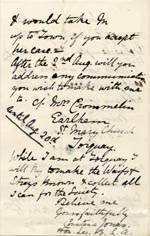 & would take Mr
up to Town if you accept
her case &
After the 2nd Aug. will you
address any communication
you wish to make with me
to c/o Mrs Crommelin
Earlham,
St Mary Church
Torquay.
until Aug 20d
While I am at Torquay I
will try to make the Waifs &
Strays known & collect all
I can for the funds
Believe me
Yours faithfully
Hon. Sec.